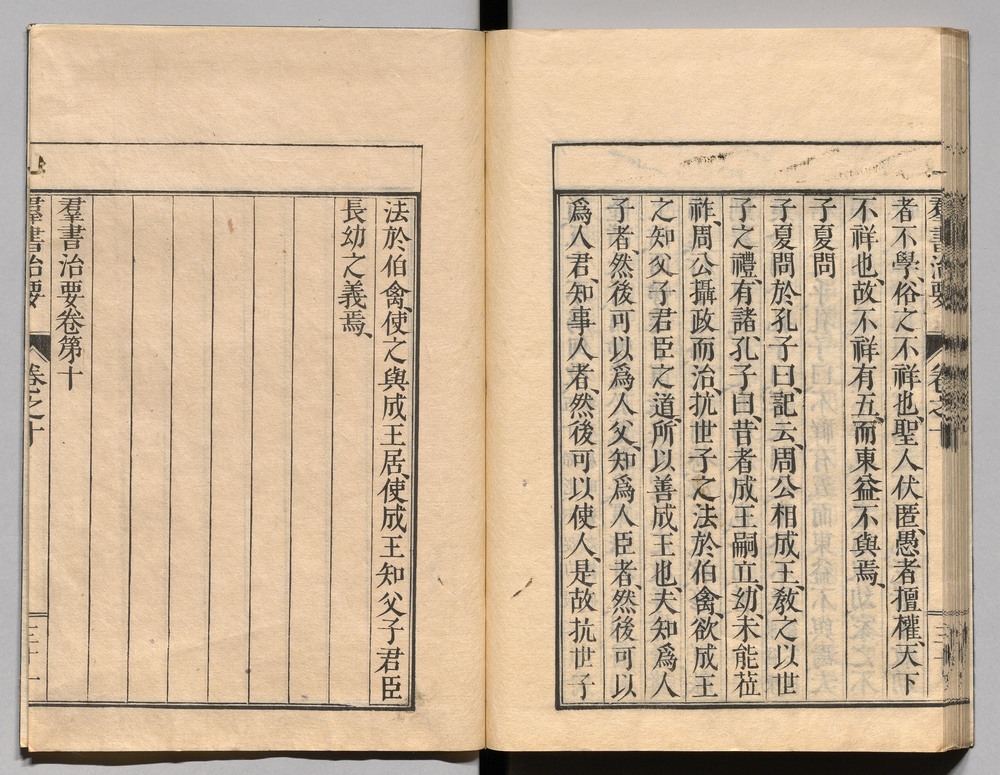 羣書治要 卷之十
者不學、俗之不祥也、聖人伏匿、愚者擅權、天下
不祥也、故不祥有五、而東益不與焉、
子夏問
子夏問於孔子曰、記云、周公相成王、教之以世
子之禮、有諸、孔子曰、昔者成王嗣立、幼、未能莅
祚、周公攝政而治、抗世子之法於伯禽、欲成王
之知父子君臣之道、所以善成王也、夫知爲人
子者、然後可以爲人父、知爲人臣者、然後可以
爲人君、知事人者、然後可以使人、是故抗世子
法於伯禽、使之與成王居、使成王知父子君臣
長幼之義焉、
羣書治要卷第十
羣書治要 卷之十